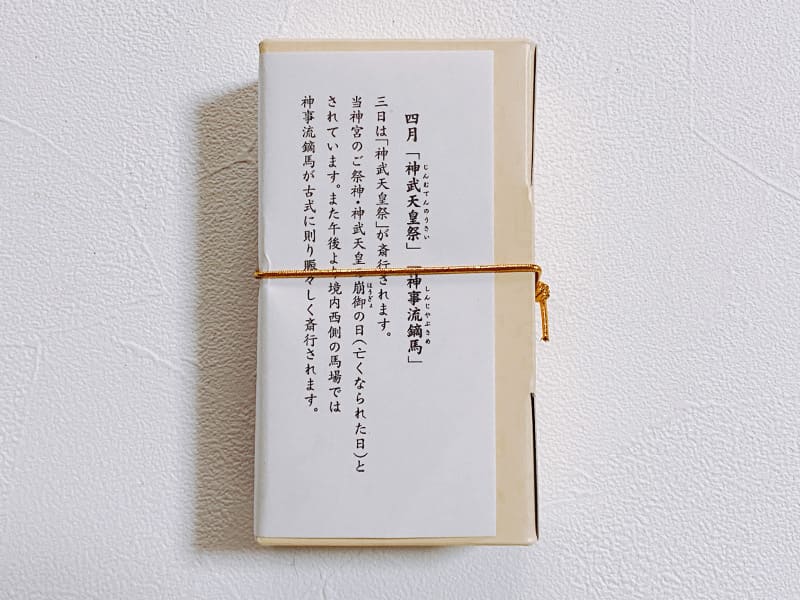 四月「神武天皇祭」「神事流鏑馬」
じんむてんのうさい
しんじやぶさめ
三日は「神武天皇祭」が斎行されます。
当神宮のご祭神・神武天皇崩御の日(亡くなられた日)と
ほうぎょ
されています。また午後より境内西側の馬場では
神事流鏑馬が古式に則り賑々しく斎行されます。